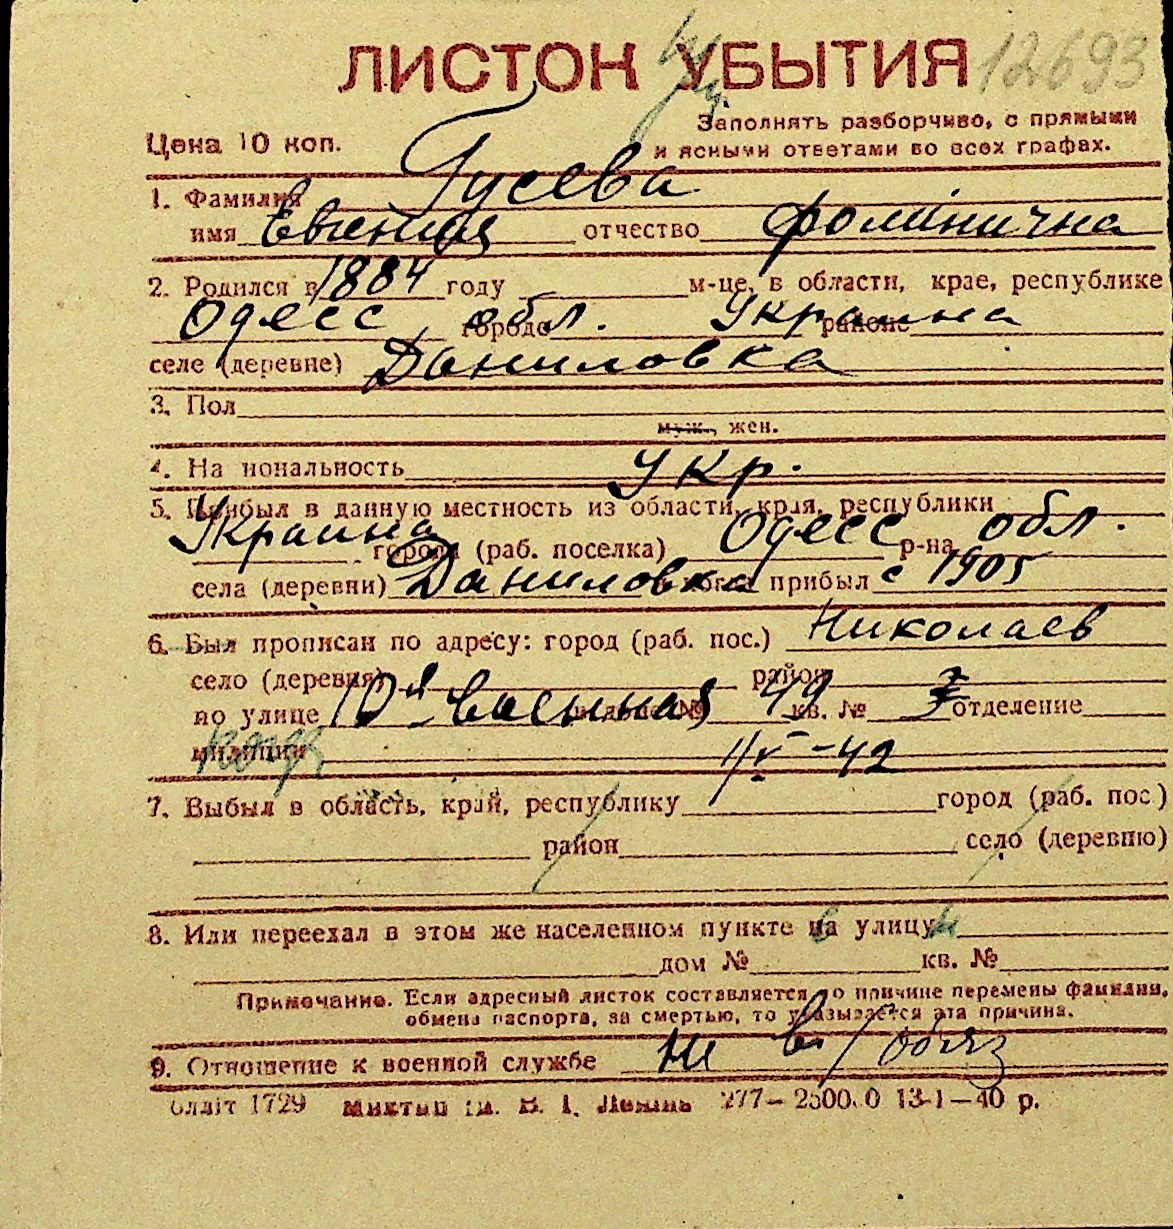 ЛИСТОК УБЫТИЯ 12693
Цена 10 коп.
Заполнять разборчиво, с прямыми
и ясными ответами во всех графах.
1. Фамилия Гусева
имя Евгения отчество Фоминична
2. Родился в 1884 году м-це, в области, крае, республике
Одесс обл. городе Украина районе
селе (деревне) Даниловка
3. Пол
муж., жен.
4. На иональность Укр.
5. Прибыл в данную местность из области, края, республики
Украина города (раб. поселка) Одесс р-на обл.
села (деревни) Даниловка когда прибыл с 1905
6. Был прописан по адресу: город (раб. пос.) Николаев
село (деревня) район
по улице 10я Военная 49 кв. № 3 отделение
милиции 1/V-42
7. Выбыл в область, край, республику город (раб. пос)
район село (деревню)
8. Или переехал в этом же населенном пункте на улицу
дом № кв. №
Примечание. Если адресный листок составляется по причине перемены фамилии,
обмена паспорта, за смертью, то указывается эта причина.
9. Отношение к военной службе не в/обяз
1729 277— 13-1—40 р.